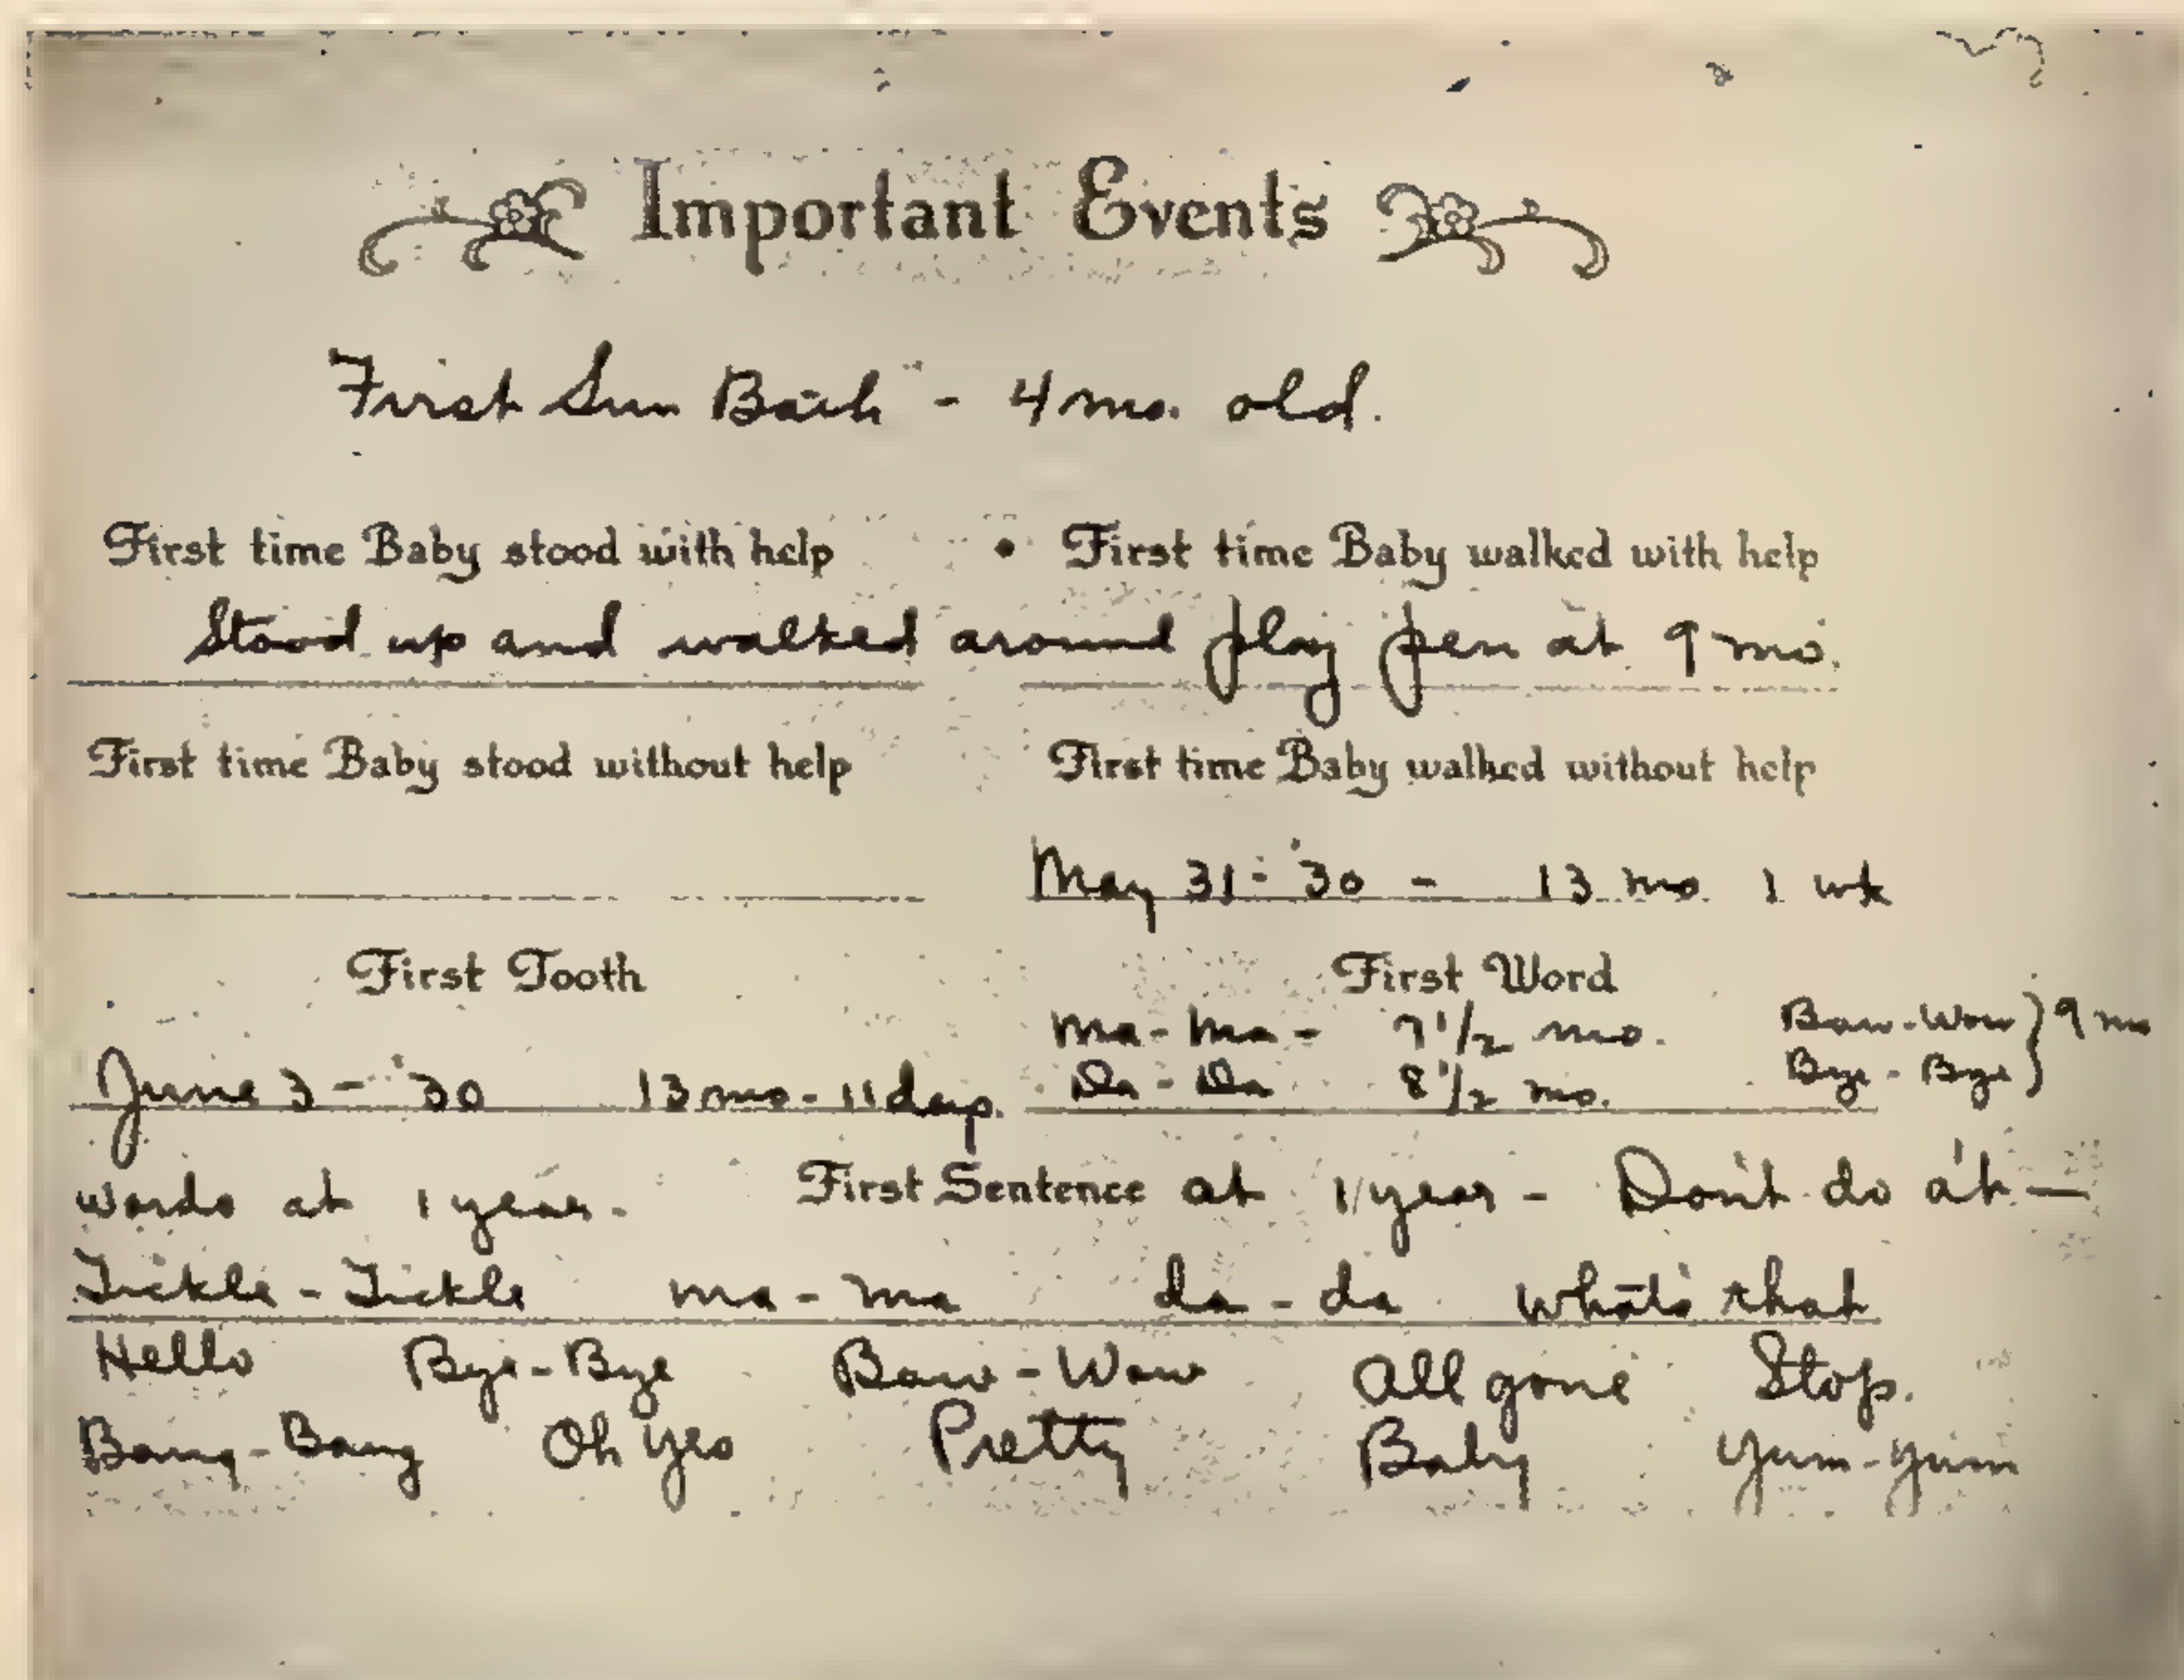 Important Events
First Sun Bath - 4 mo. old.
First time Baby stood with help First time Baby walked with help
Stood up and walked around play pen at 9 mo.
First time Baby stood without help First time Baby walked without help
May 31 - '30 - 13 mo 1 wk
First Tooth First Word
Ma-Ma - 7 1/2 mo. Bow-Wow } 9 mo
June 3 - '30 13 mo - 11 days. Da-Da 8 1/2 mo. Bye-Bye
words at 1 year. First Sentence at 1 year - Don't do 'at —
Tickle-Tickle ma-ma da-da What's that
Hello Bye-Bye Bow-Wow All gone Stop.
Bang-Bang Oh yes Pretty Baby Yum-yum